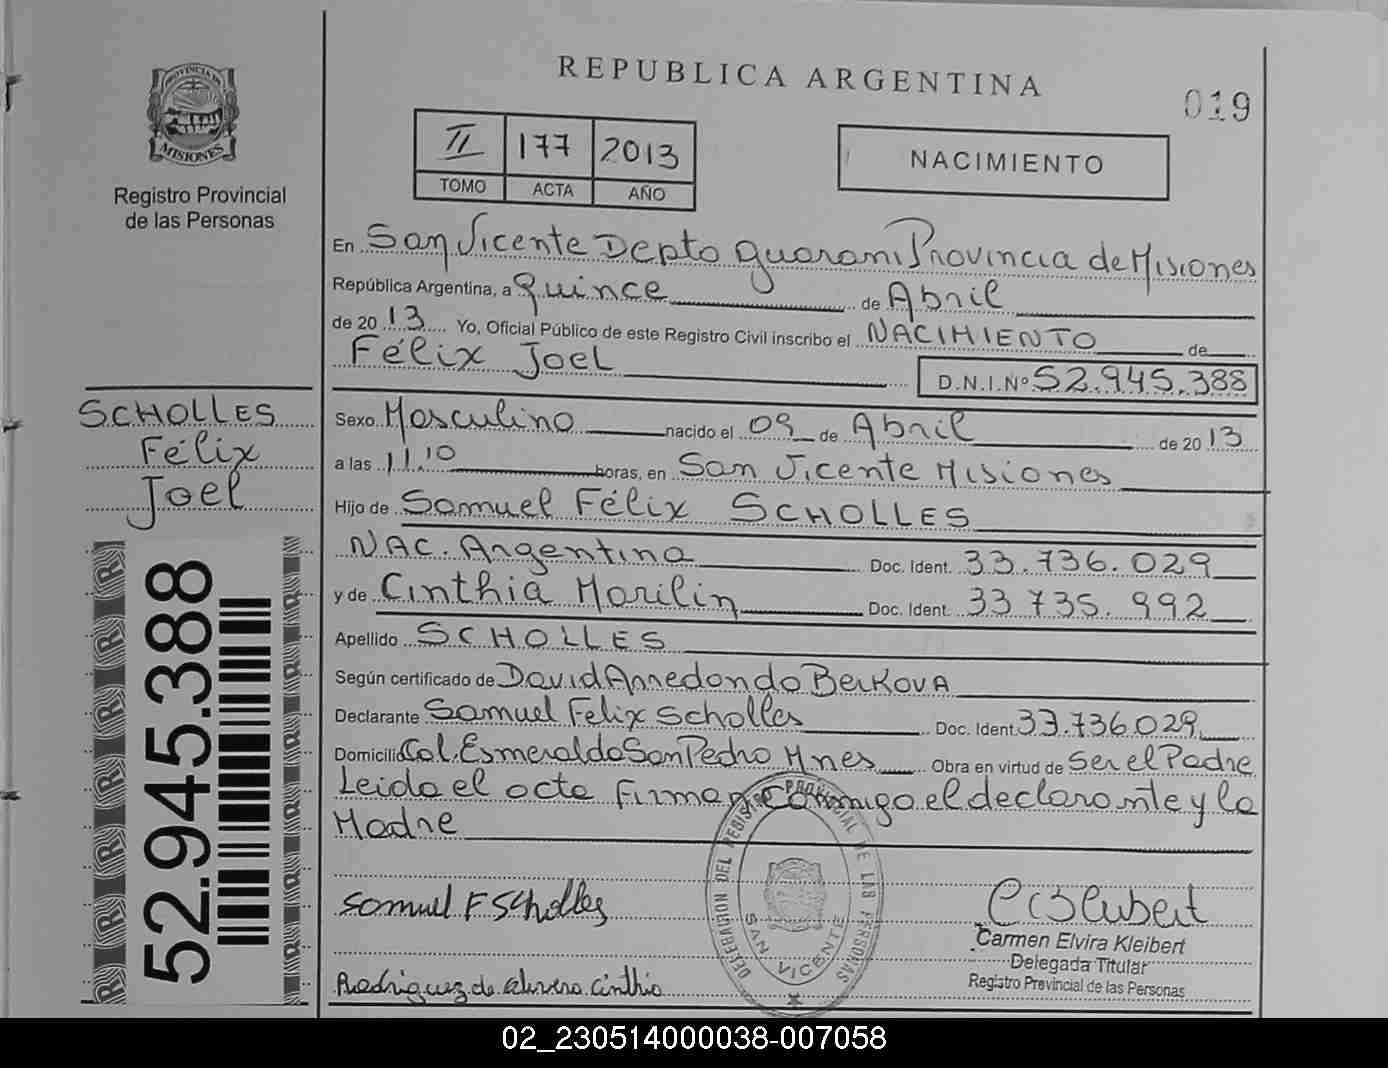 REPUBLICA ARGENTINA
019
PROVINCIA DE
MISIONES
Registro Provincial
de las Personas
II 177 2013
TOMO ACTA AÑO
NACIMIENTO
En San Vicente Depto Guarani Provincia de Misiones
República Argentina, a Quince de Abril
de 2013 Yo, Oficial Público de este Registro Civil inscribo el NACIMIENTO de
Félix Joel
D.N.I.Nº 52.945.388
SCHOLLES
Félix
Joel
52.945.388
Sexo Masculino nacido el 09 de Abril de 2013
a las 11.10 horas, en San Vicente Misiones
Hijo de Samuel Félix SCHOLLES
NAC. Argentina Doc. Ident. 33.736.029
y de Cinthia Marilin Doc. Ident. 33 735.992
Apellido SCHOLLES
Según certificado de David Arredondo Berkova
Declarante Samuel Felix Scholles Doc. Ident. 33.736.029
Domicilio Col. Esmeralda San Pedro Mnes Obra en virtud de Ser el Padre
Leida el acta Firman conmigo el declarante y la
Madre
Samuel F Scholles
DELEGACION DEL REGISTRO PROVINCIAL DE LAS PERSONAS
SAN VICENTE
Carmen Elvira Kleibert
Delegada Titular
Registro Provincial de las Personas
Rodriguez de Cinthia
02_230514000038-007058